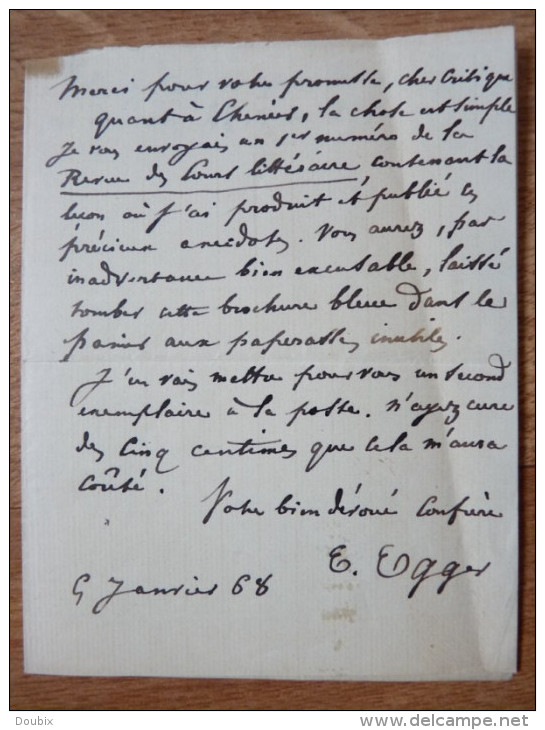 Merci pour votre promesse, cher Critique
quant à Chénier, la chose est simple
Je vous envoyais un 1er numéro de la
Revue des Cours littéraire, contenant la
leçon où j'ai produit et publié ces
précieux anecdotes. Vous aurez, par
inadvertance bien excusable, laissé
tomber cette brochure bleue dans le
panier aux paperasses inutiles.
J'en vais mettre pour vous un second
exemplaire à la poste. N'ayez cure
des cinq centimes que cela m'aura
coûté.
Votre bien dévoué confrère
E. Egger
9 Janvier 68
Doubix
www.delcampe.net